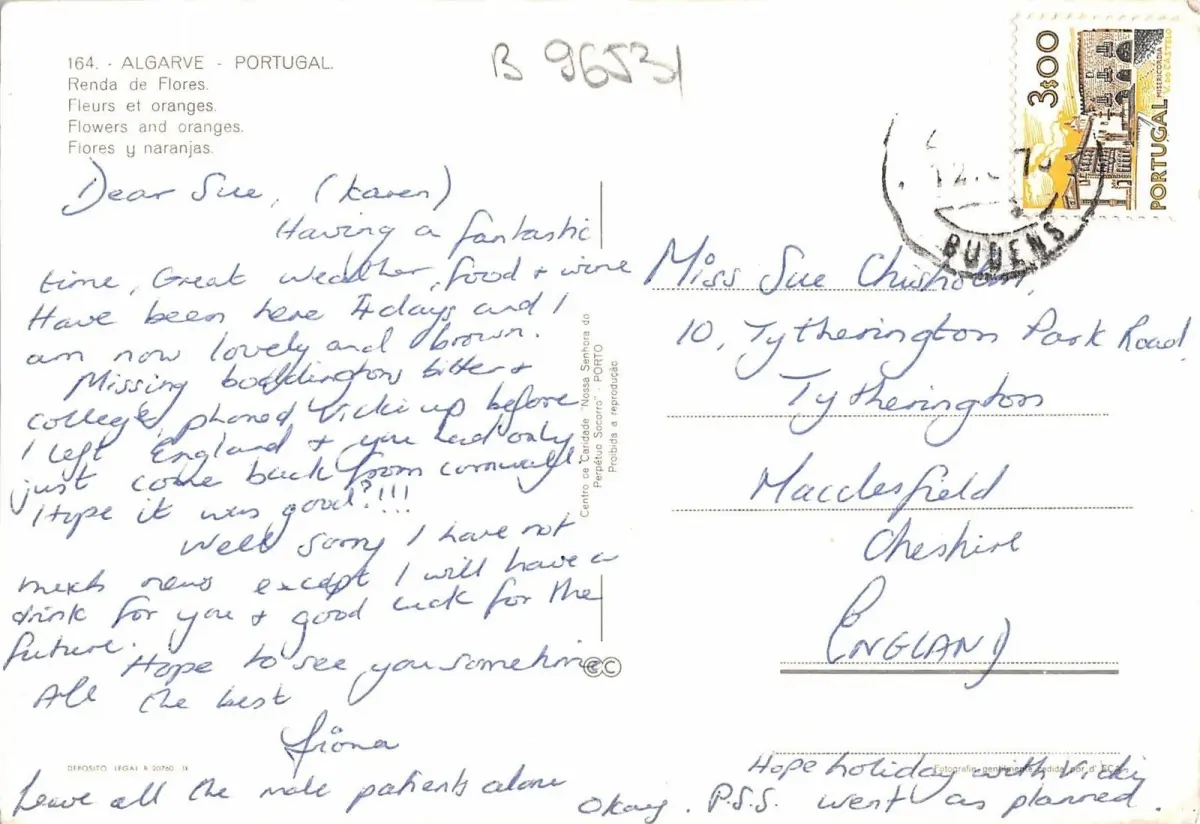 164. - ALGARVE - PORTUGAL.
Renda de Flores.
Fleurs et oranges.
Flowers and oranges.
Flores y naranjas.
B 96531
3$00
PORTUGAL
MISERICORDIA
V. DO CASTELO
12.
BUDENS
Dear Sue, (Karen)
Having a fantastic
time, Great weather, food + wine
Have been here 4 days and I
am now lovely and brown.
Missing boddingtons bitter +
college, phoned Vicki up before
I left England + you had only
just come back from cornwall.
I Hope it was good?!!!
Well sorry I have not
much news except I will have a
drink for you + good luck for the
future.
Hope to see you sometime
All the best
fiona
Leave all the male patients alone
Centro de Caridade "Nossa Senhora do
Perpétuo Socorro" - PORTO
Proibida a reprodução
Miss Sue Chisholm,
10, Tytherington Park Road,
Tytherington
Macclesfield
Cheshire
ENGLAND
DEPOSITO LEGAL B 20760 IX
Fotografia gentilmente cedida por
Hope holiday with Vicky
Okay. P.S.S. went as planned.